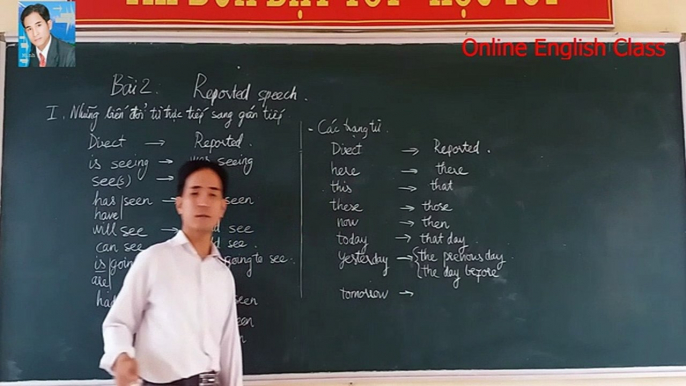 THI ĐUA DẠY TỐT - HỌC TỐT
Online English Class
Bài 2. Reported speech.
I. Những biến đổi từ trực tiếp sang gián tiếp
Direct → Reported.
is seeing → was seeing
see(s) →
has seen → seen
have
will see → see
can see → see.
is going → going to see.
are
had seen
- Các trạng từ.
Direct → Reported.
here → there
this → that
these → those
now → then
today → that day.
yesterday → the previous day.
the day before
tomorrow →